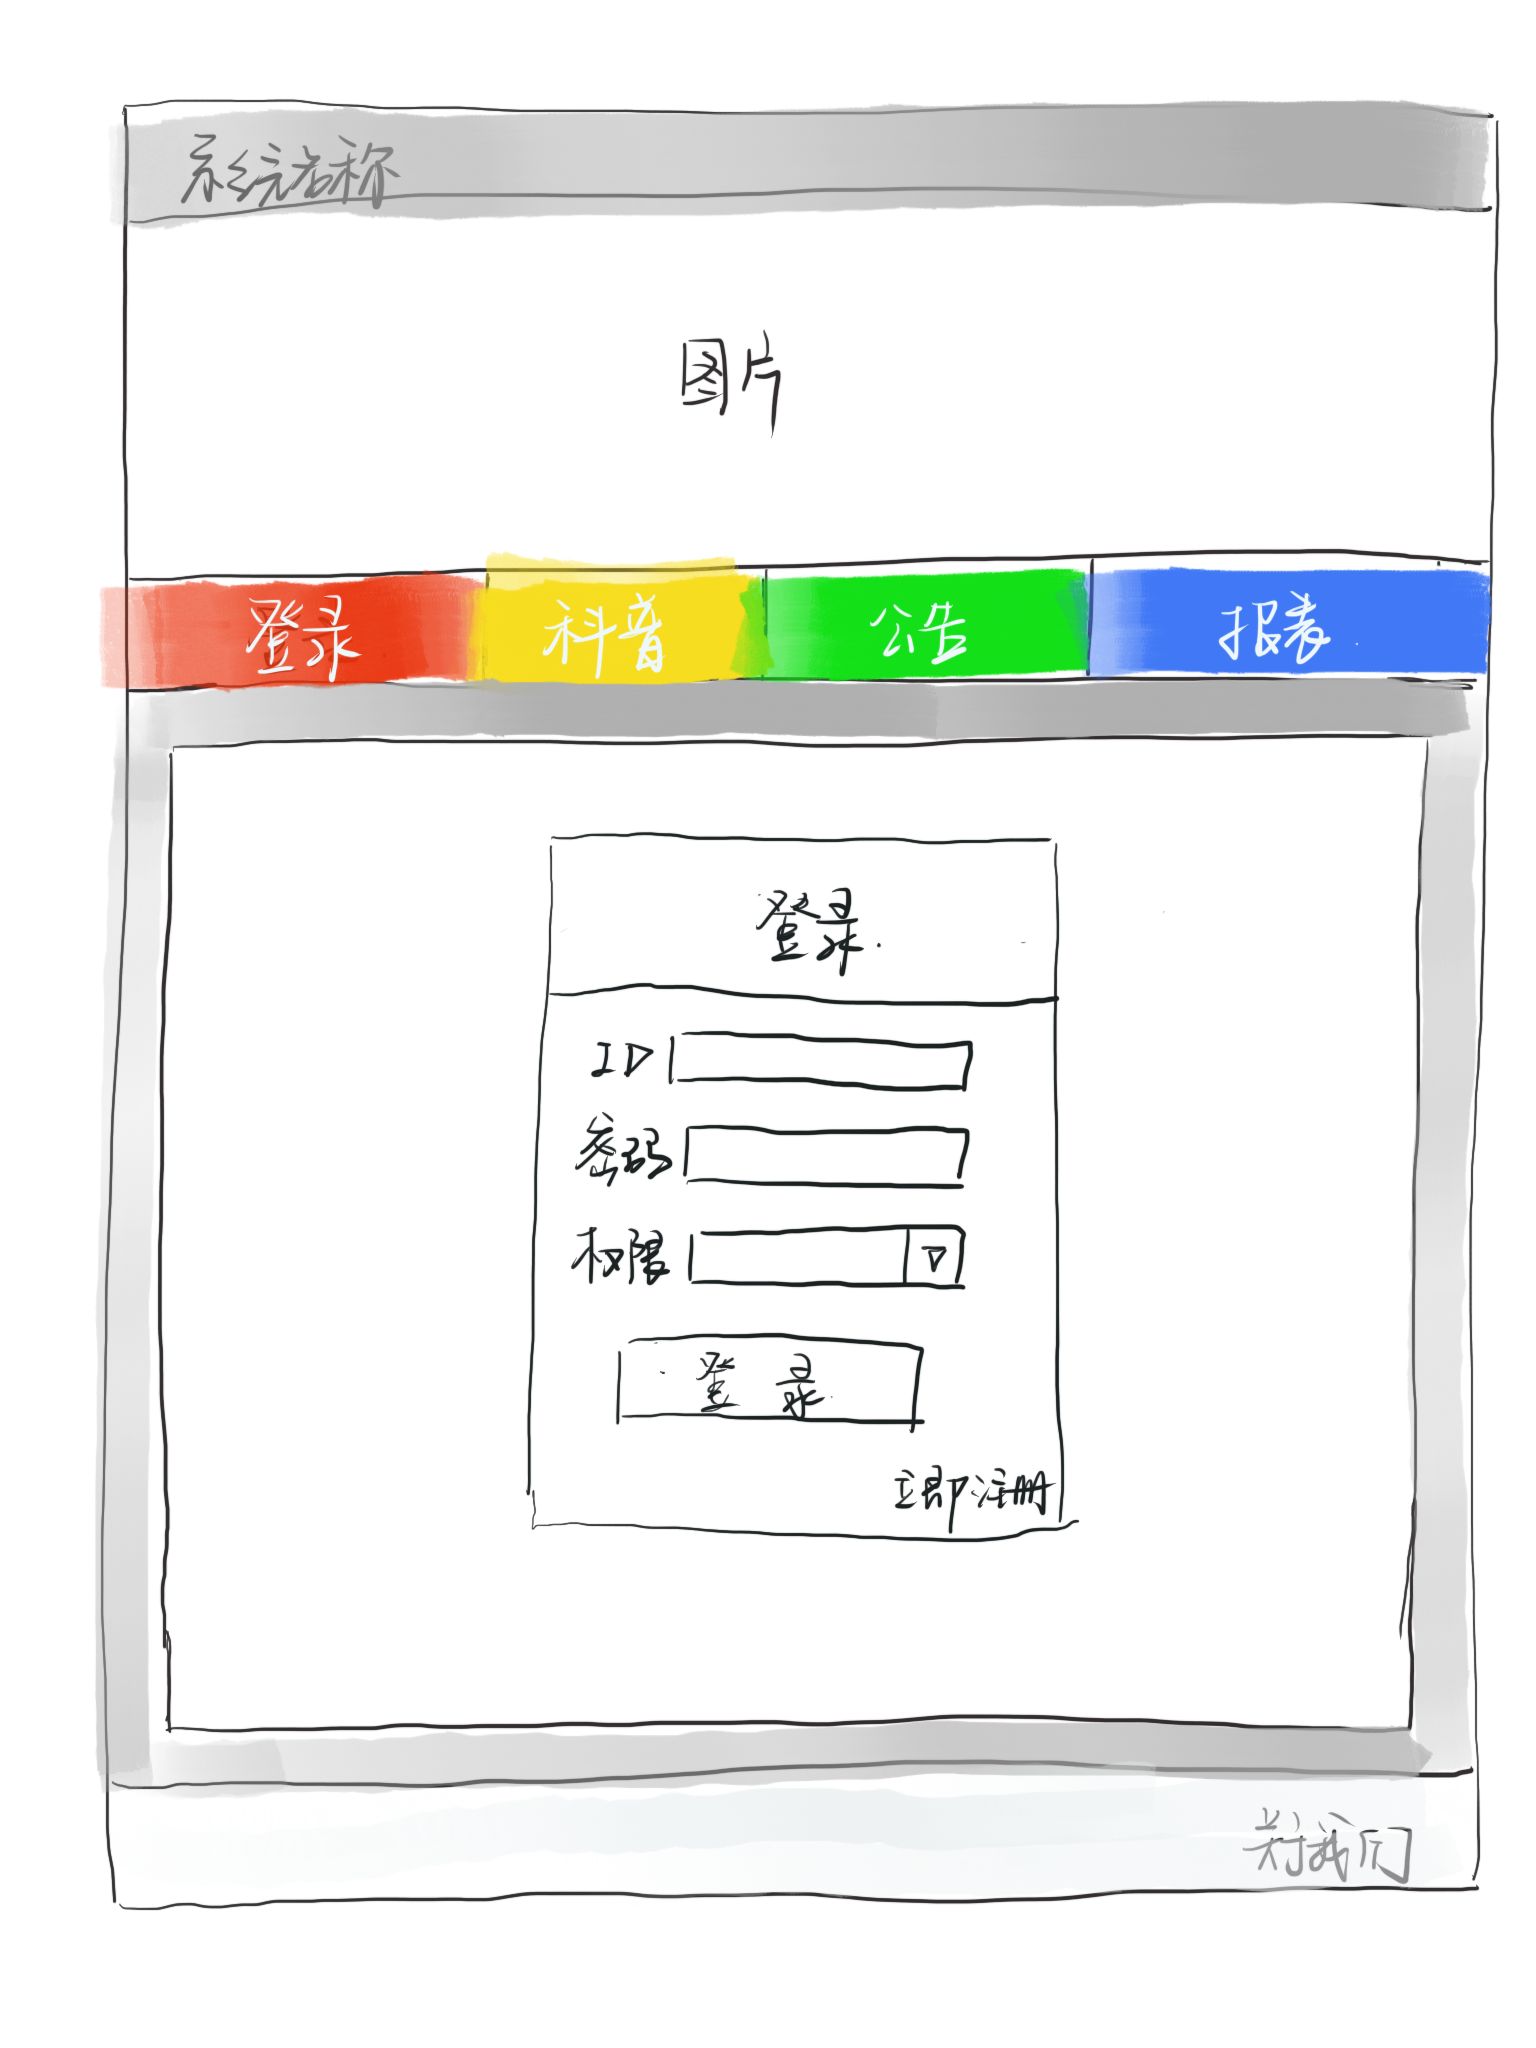 系统名称
图片
登录 科普 公告 报表
登录
ID
密码
权限
登录
立即注册
关于我们